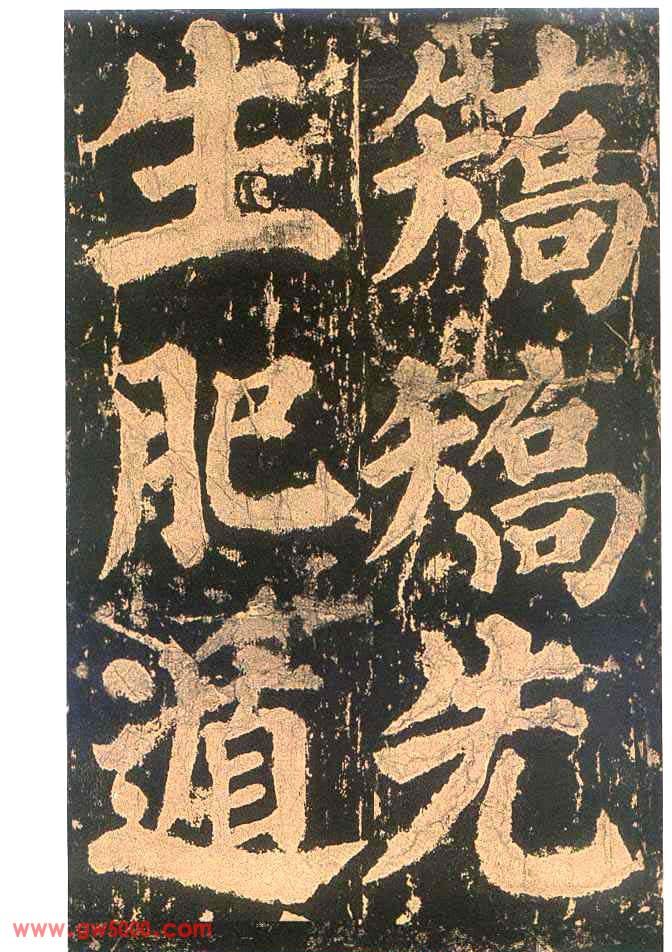 矯矯先
生肥遁
www.gw5000.com